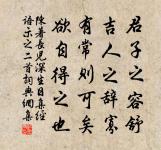 君子之容舒
吉人之辞寡
有常则可矣
欲自得之也
陈着长儿深生日集经
语示之二首词典网集